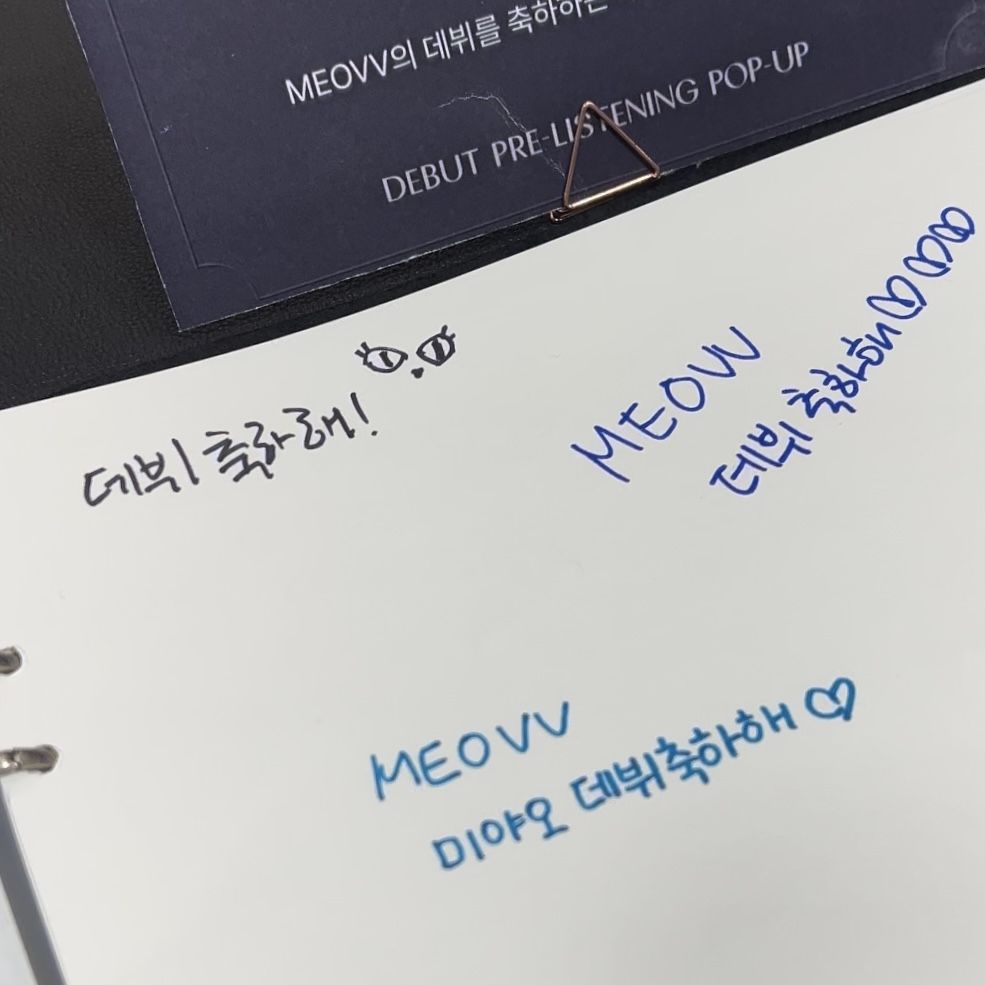 MEOVV의 데뷔를 축하하는
DEBUT PRE-LISTENING POP-UP
데뷔 축하해!
MEOVV
데뷔 축하해
MEOVV
미야오 데뷔축하해